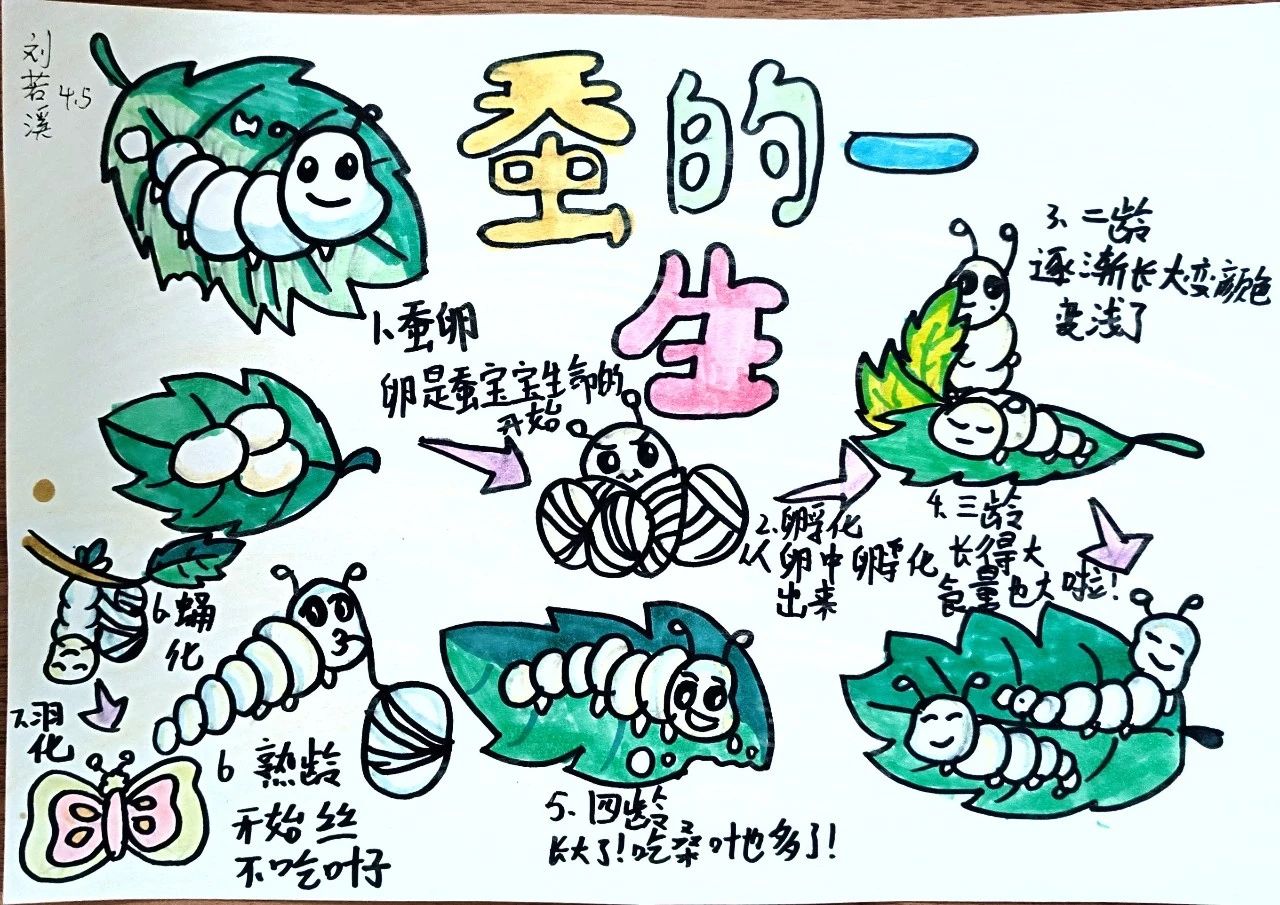 刘若溪
4.5
蚕的一
生
1、蚕卵
卵是蚕宝宝生命的
开始
2.孵化
从卵中孵化
出来
3、二龄
逐渐长大变颜色
变浅了
4.三龄
长得大
食量也大啦！
5、四龄
长大了！吃桑叶也多了！
6 熟龄
开始丝
不吃叶子
6.蛹
化
7.羽
化